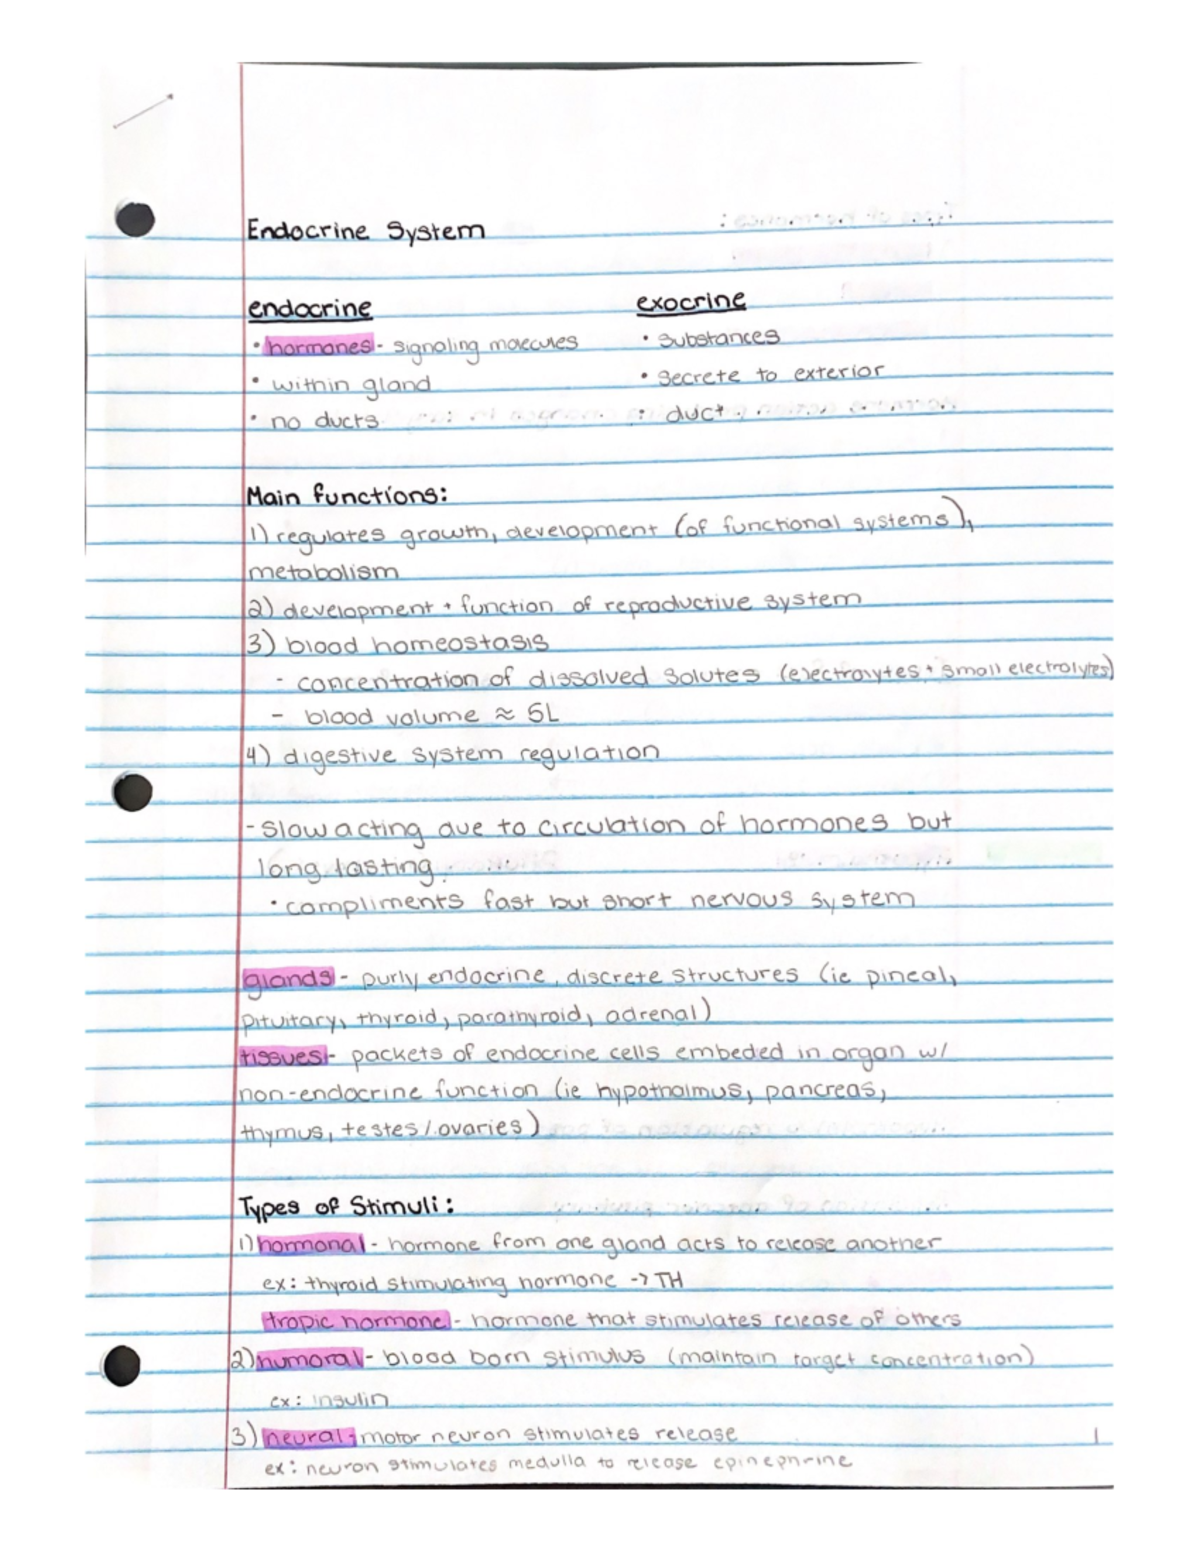 Endocrine System
endocrine exocrine
• hormones - signaling molecules • substances
• within gland • secrete to exterior
• no ducts • duct
Main functions:
1) regulates growth, development (of functional systems),
metabolism
2) development + function of reproductive system
3) blood homeostasis
- concentration of dissolved solutes (electrolytes + small electrolytes)
- blood volume ≈ 5L
4) digestive system regulation
- slow acting due to circulation of hormones but
long lasting
• compliments fast but short nervous system
glands - purly endocrine, discrete structures (ie pineal,
pituitary, thyroid, parathyroid, adrenal)
tissues - packets of endocrine cells embeded in organ w/
non-endocrine function (ie hypothalmus, pancreas,
thymus, testes/ovaries)
Types of Stimuli:
1) hormonal - hormone from one gland acts to release another
ex: thyroid stimulating hormone -> TH
tropic hormone - hormone that stimulates release of others
2) humoral - blood born stimulus (maintain target concentration)
ex: insulin
3) neural - motor neuron stimulates release
1
ex: neuron stimulates medulla to release epinephrine